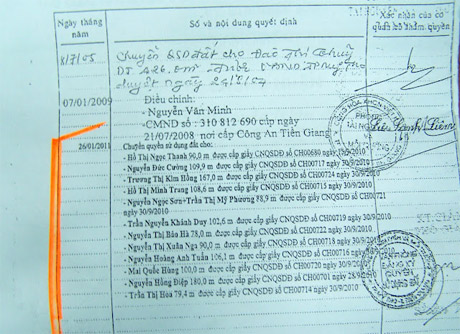 Ngày tháng năm
Số và nội dung quyết định
Xác nhận của cơ quan có thẩm quyền
8/7/05
Chuyển QSD đất cho
duyệt ngày
07/01/2009
Điều chỉnh:
- Nguyễn Văn Minh
-CMND số : 310 812 690 cấp ngày
21/07/2008 nơi cấp Công An Tiền Giang
26/01/2011
Chuyển quyền sử dụng đất cho:
- Hồ Thị Ngọc Thanh 90,0 m được cấp giấy CNQSDĐ số CH00680 ngày 30/9/2010
- Nguyễn Đức Cường 109,9 m được cấp giấy CNQSDĐ số CH00717 ngày 30/9/2010
- Trương Thị Kim Hồng 167,0 m được cấp giấy CNQSDĐ số CH00713 ngày 30/9/2010
- Hồ Thị Minh Trang 108,6 m được cấp giấy CNQSDĐ số CH00724 ngày 30/9/2010
- Nguyễn Ngọc Sơn+Trần Thị Mỹ Phương 88,9 m được cấp giấy CNQSDĐ số CH00721
ngày 30/9/2010
- Trần Nguyễn Khánh Duy 102,6 m được cấp giấy CNQSDĐ số CH00719 ngày
30/9/2010
- Nguyễn Thị Bảo Hà 78,0 m được cấp giấy CNQSDĐ số CH00722 ngày 30/9/2010
- Nguyễn Thị Xuân Nga 90,0 m được cấp giấy CNQSDĐ số CH00718 ngày 30/9/2010
- Nguyễn Hoàng Anh Tuấn 106,1 m được cấp giấy CNQSDĐ số CH00716 ngày 30/9/2010
- Mai Quốc Hùng 100,0 m được cấp giấy CNQSDĐ số CH00720 ngày 30/9/2010
- Nguyễn Hồng Điệp 180,0 m được cấp giấy CNQSDĐ số CH00701 ngày 28/9/2010
- Trần Thị Hoa 79,4 m được cấp giấy CNQSDĐ số CH00714 ngày 30/9/2010